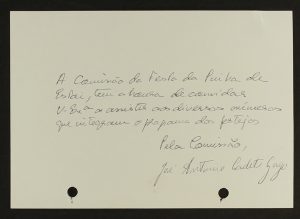 A Comissão da Festa da Pinha de
Estoi, tem a honra de convidar
V. Exª a assistir aos diversos números
que integram o programa dos festejos
Pela Comissão,
José António